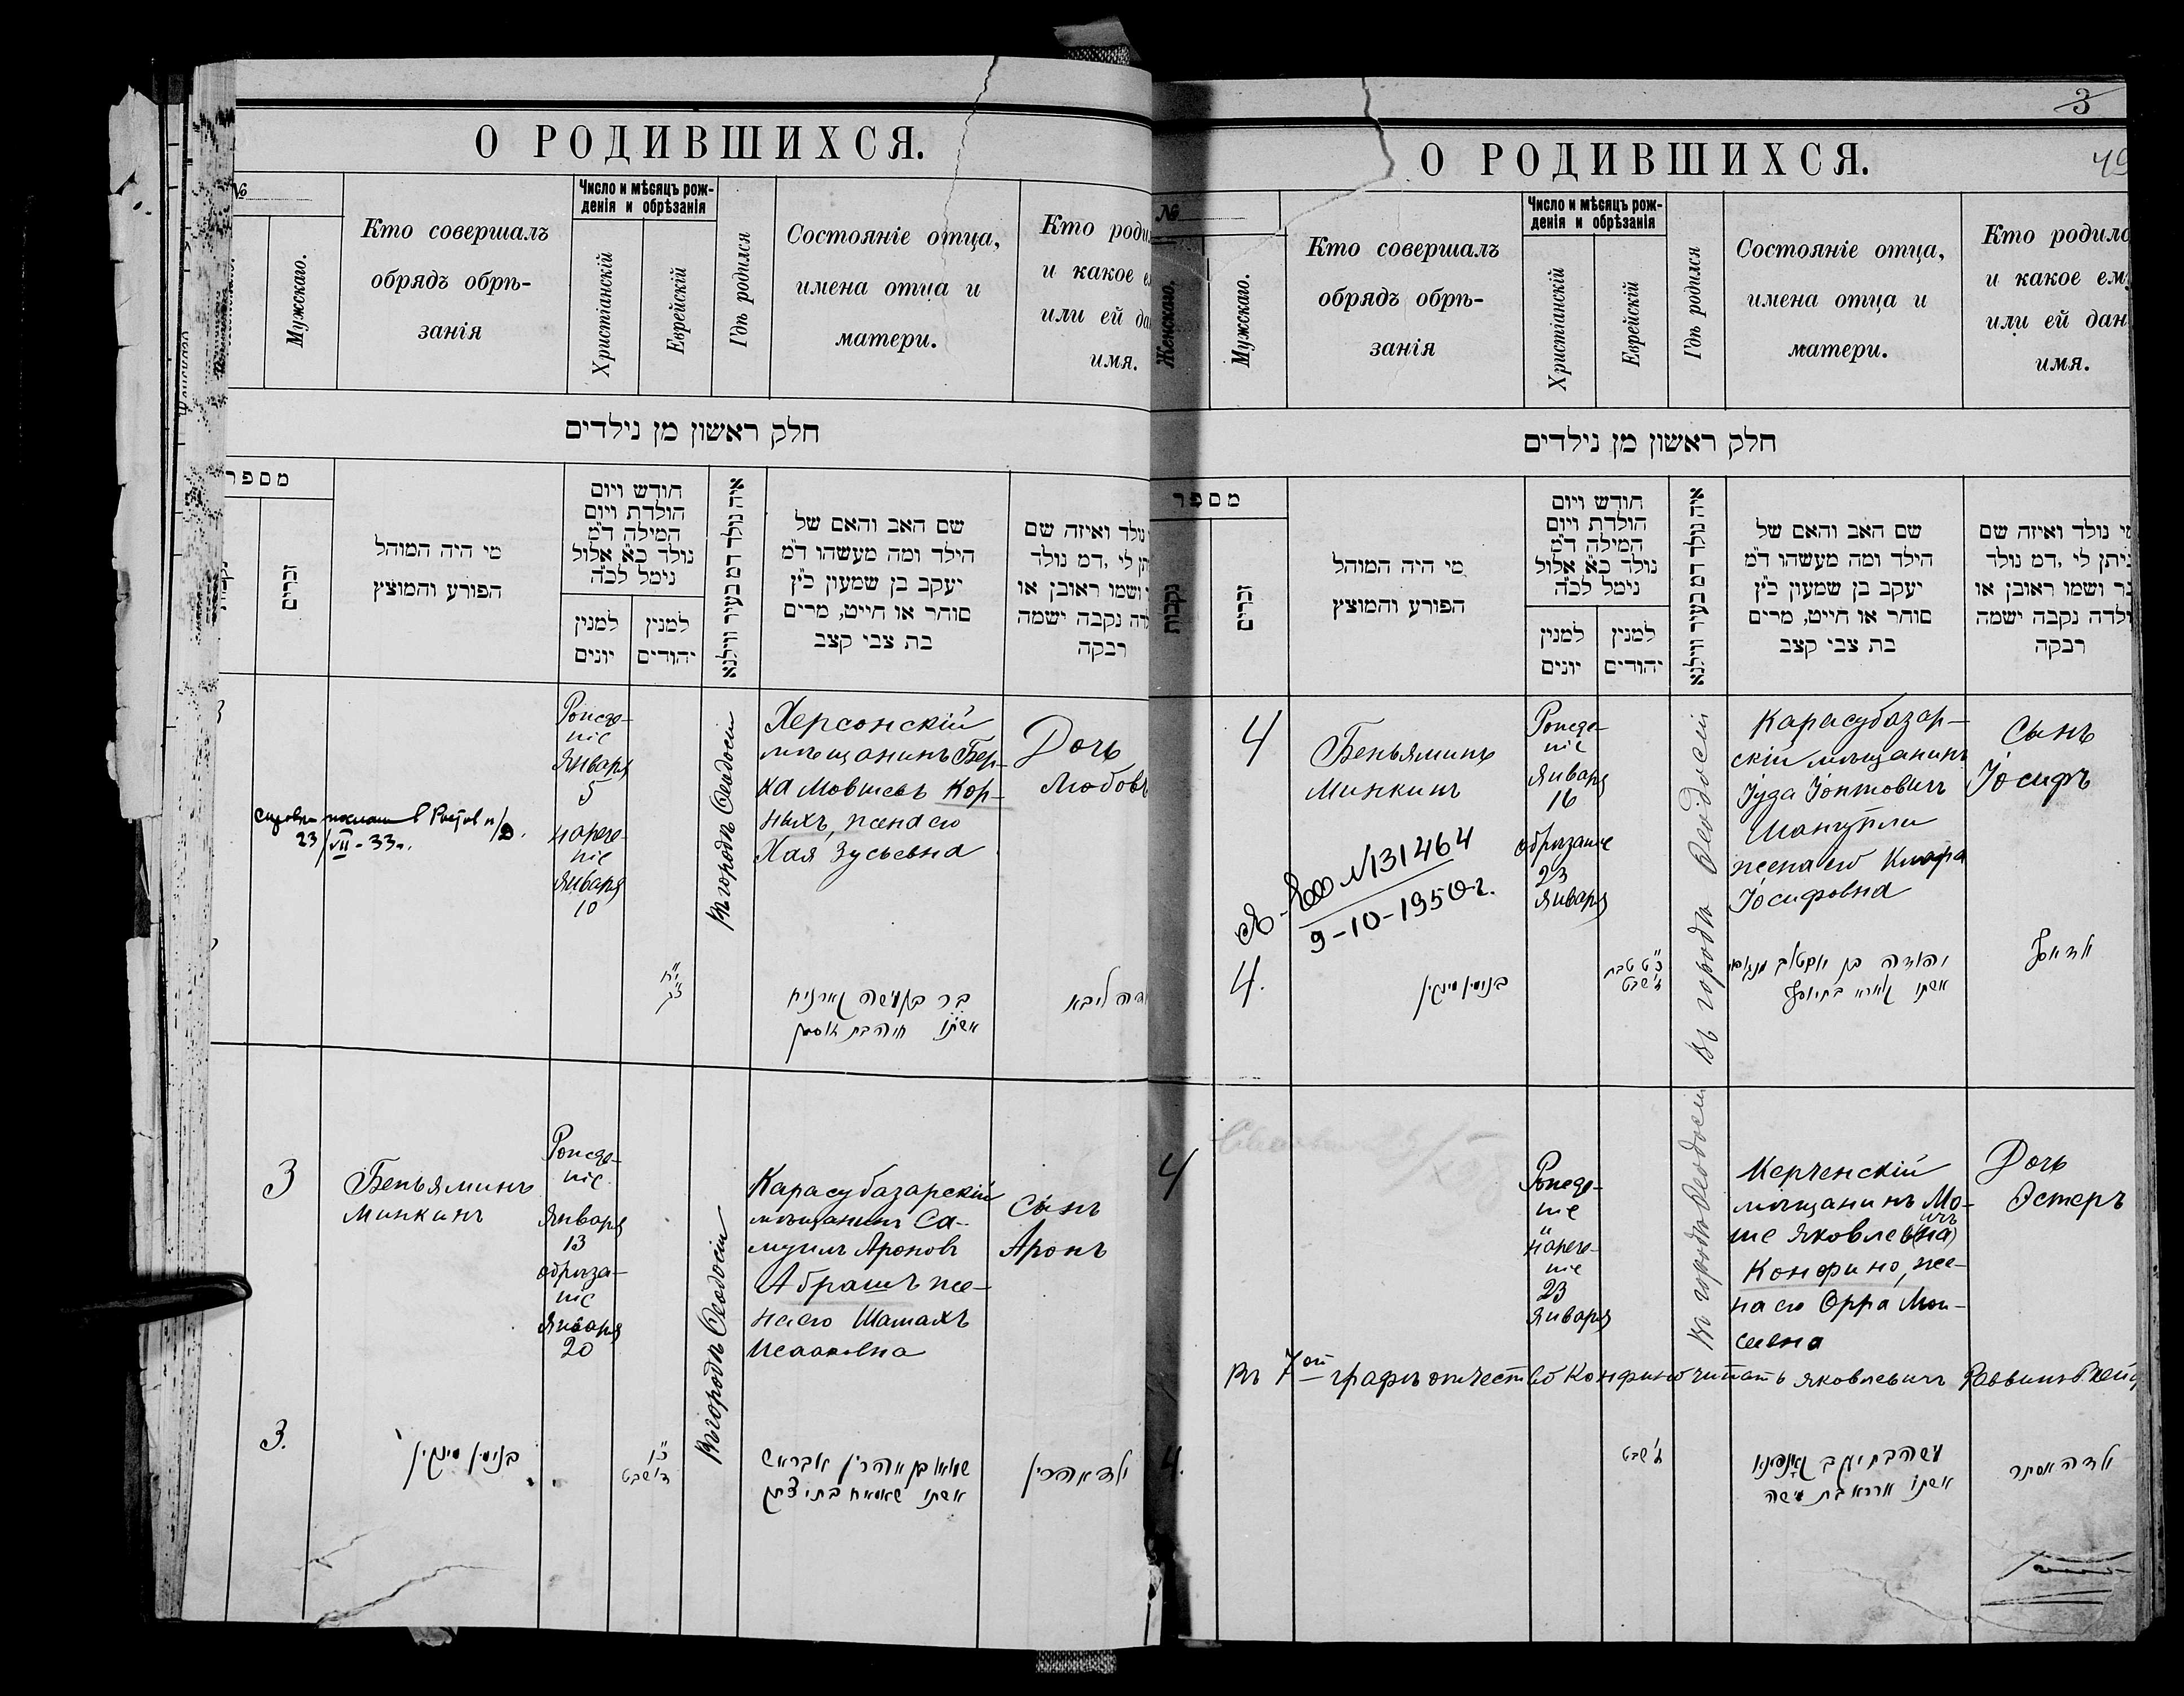 О РОДИВШИХСЯ.
№
Мужскаго.
Кто совершалъ
обрядъ обрѣ-
занія
Число и мѣсяцъ рож-
денія и обрѣзанія
Христіанскій
Еврейскій
Гдѣ родился
Состояніе отца,
имена отца и
матери.
Кто
и какое
или ей
имя.
חלק ראשון מן נילדים
מספר
זכרים
מי היה המוהל
הפורע והמוצץ
חודש ויום
הולדת ויום
המילה ד"מ
נולד כ"א אלול
נימל לכ"ה
למנין
יונים
למנין
יהודים
איה נולד דמ בעיר ווילנא
שם האב והאם של
הילד ומה מעשהו ד"מ
יעקב בן שמעון כ"ץ
סוחר או חייט, מרים
בת צבי קצב
נולד ואיזה שם
לי, דמ נולד
ושמו ראובן או
נקבה ישמה
רבקה
Рожде-
ніе
Января
5
нарече-
ніе
Января
10
Въ городѣ Ѳеодосіи
Херсонскій
мѣщанинъ Бер-
ка Мовшевъ Кор-
ныхъ, жена его
Хая Зусьевна
Дочь
Любовь
23/VII-33г.
3
Беньяминъ
Минкинъ
Рожде-
ніе
Января
13
обрѣза-
ніе
Января
20
Въ городѣ Ѳеодосіи
Карасубазарскій
мѣщанинъ Са-
муилъ Ароновъ
Абрашъ же-
на его Шамахъ
Исааковна
Сынъ
Аронъ
3.
בנימין מינקין
ילד אהרין
3
49
О РОДИВШИХСЯ.
№
Женскаго.
Мужскаго.
Кто совершалъ
обрядъ обрѣ-
занія
Число и мѣсяцъ рож-
денія и обрѣзанія
Христіанскій
Еврейскій
Гдѣ родился
Состояніе отца,
имена отца и
матери.
Кто
и какое
или ей
имя.
חלק ראשון מן נילדים
מספר
נקבות
זכרים
מי היה המוהל
הפורע והמוצץ
חודש ויום
הולדת ויום
המילה ד"מ
נולד כ"א אלול
נימל לכ"ה
למנין
יונים
למנין
יהודים
איה נולד דמ בעיר ווילנא
שם האב והאם של
הילד ומה מעשהו ד"מ
יעקב בן שמעון כ"ץ
סוחר או חייט, מרים
בת צבי קצב
נולד ואיזה שם
לי, דמ נולד
ושמו ראובן או
נקבה ישמה
רבקה
4
Беньяминъ
Минкинъ
Рожде-
ніе
Января
16
обрѣзаніе
23
Января
Въ городѣ Ѳеодосіи
Карасубазар-
скій мѣщанинъ
Іуда Іонтовичъ
жена его Клара
Іосифовна
Сынъ
Іосифъ
№131464
9-10-1950г.
4.
בנימין מינקין
4
Рожде-
ніе
и
нарече-
ніе
23
Января
Въ городѣ Ѳеодосіи
Керченскій
мѣщанинъ Мо-
ше Яковлев(на)ичъ
Конфино, же-
на его Орра Мои-
сеевна
Дочь
Эстеръ
Въ 7ой графѣ отчество Конфино читать Яковлевичъ Раввинъ
4.